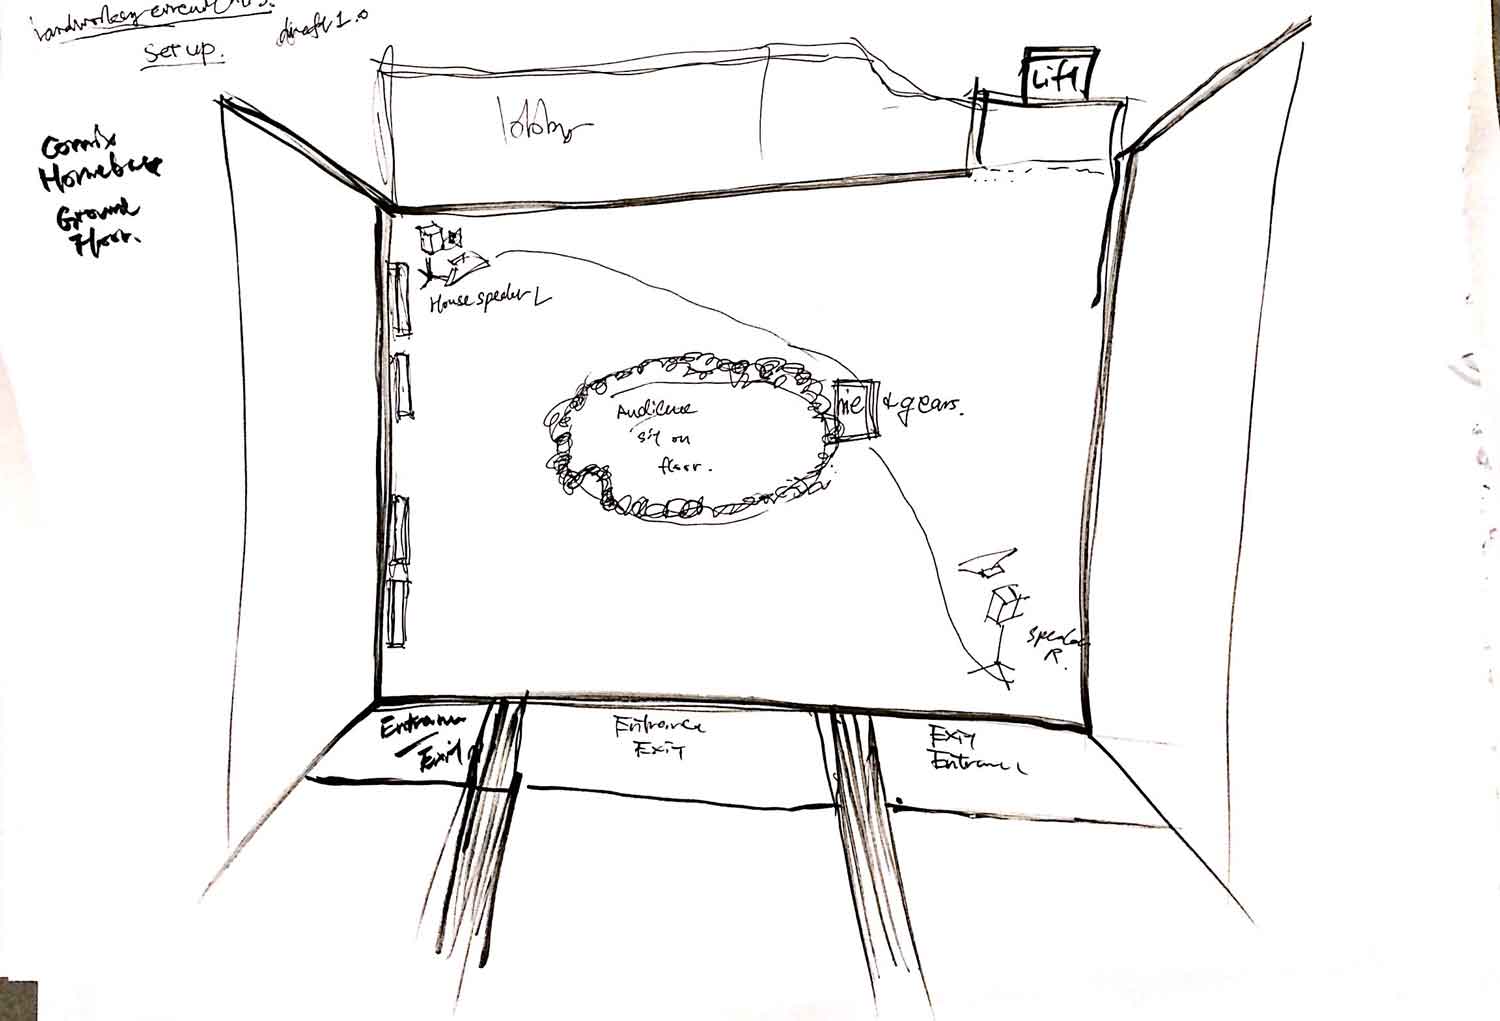 set up.
draft 1.0
Comix
Homebase
Ground
Floor.
lobby
Lift
House speaker L
Audience
sit on
floor.
me & gears.
Speaker
R.
Entrance
Exit
Entrance
Exit
Exit
Entrance